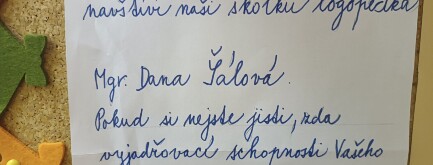 navštíví naši školku logopedka
Mgr. Dana Šálová.
Pokud si nejste jisti, zda
vyjadřovací schopnosti Vašeho